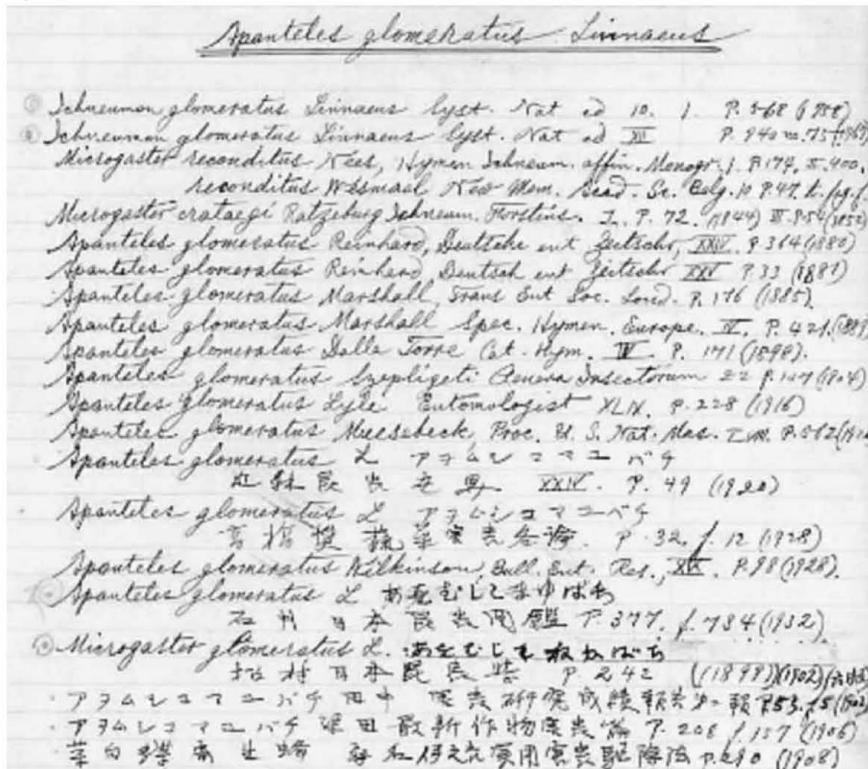 Apanteles glomeratus Linnaeus
Ichneumon glomeratus Linnaeus Syst. Nat ed 10. 1. P. 568 (1758)
Ichneumon glomeratus Linnaeus Syst. Nat ed XII P. 940 no. 75
Microgaster reconditus Nees, Hymen Ichneum. affin. Monogr. 1. P. 174.
reconditus Wesmael Nouv Mem. Acad. Sc. Belg. 10 P. 47.
Microgaster crataegi Ratzeburg Ichneum. Forstins. I. P. 72. (1844) III P. 54
Apanteles glomeratus Reinhard, Deutsche ent Zeitschr, XXIV. P. 364 (1880)
Apanteles glomeratus Reinhard, Deutsch ent Zeitschr XXV P. 33 (1881)
Apanteles glomeratus Marshall, Trans Ent Soc. Lond. P. 176 (1885).
Apanteles glomeratus Marshall Spec. Hymen. Europe. IV. P. 421.
Apanteles glomeratus Dalla Torre Cat. Hym. IV. P. 171 (1898).
Apanteles glomeratus Szepligeti Genera Insectorum 22 P. 107 (1904)
Apanteles glomeratus Lyle Entomologist XLIX. P. 228 (1916)
Apanteles glomeratus Muesebeck Proc. U. S. Nat. Mus. P. 562
Apanteles glomeratus L アヲムシコマユバチ
XXIV. P. 49 (1920)
Apanteles glomeratus L アヲムシコマユバチ
高橋奨 蔬菜害虫各論. P. 32. f. 12 (1928)
Apanteles glomeratus Wilkinson, Bull. Ent. Res., XIX. P. 98 (1928).
Apanteles glomeratus L あをむしこまゆばち
石井 日本昆虫図鑑 P. 377. f. 734 (1932)
Microgaster glomeratus L. あをむし
松村 日本昆虫学 P. 242 (1898)(1902)
アヲムシコマユバチ 田中 害虫研究成績報告 P. 53.
アヲムシコマユバチ 深田 最新作物害虫篇 P. 208 f. 157 (1906)
実用害虫駆除法 P. 290 (1908)